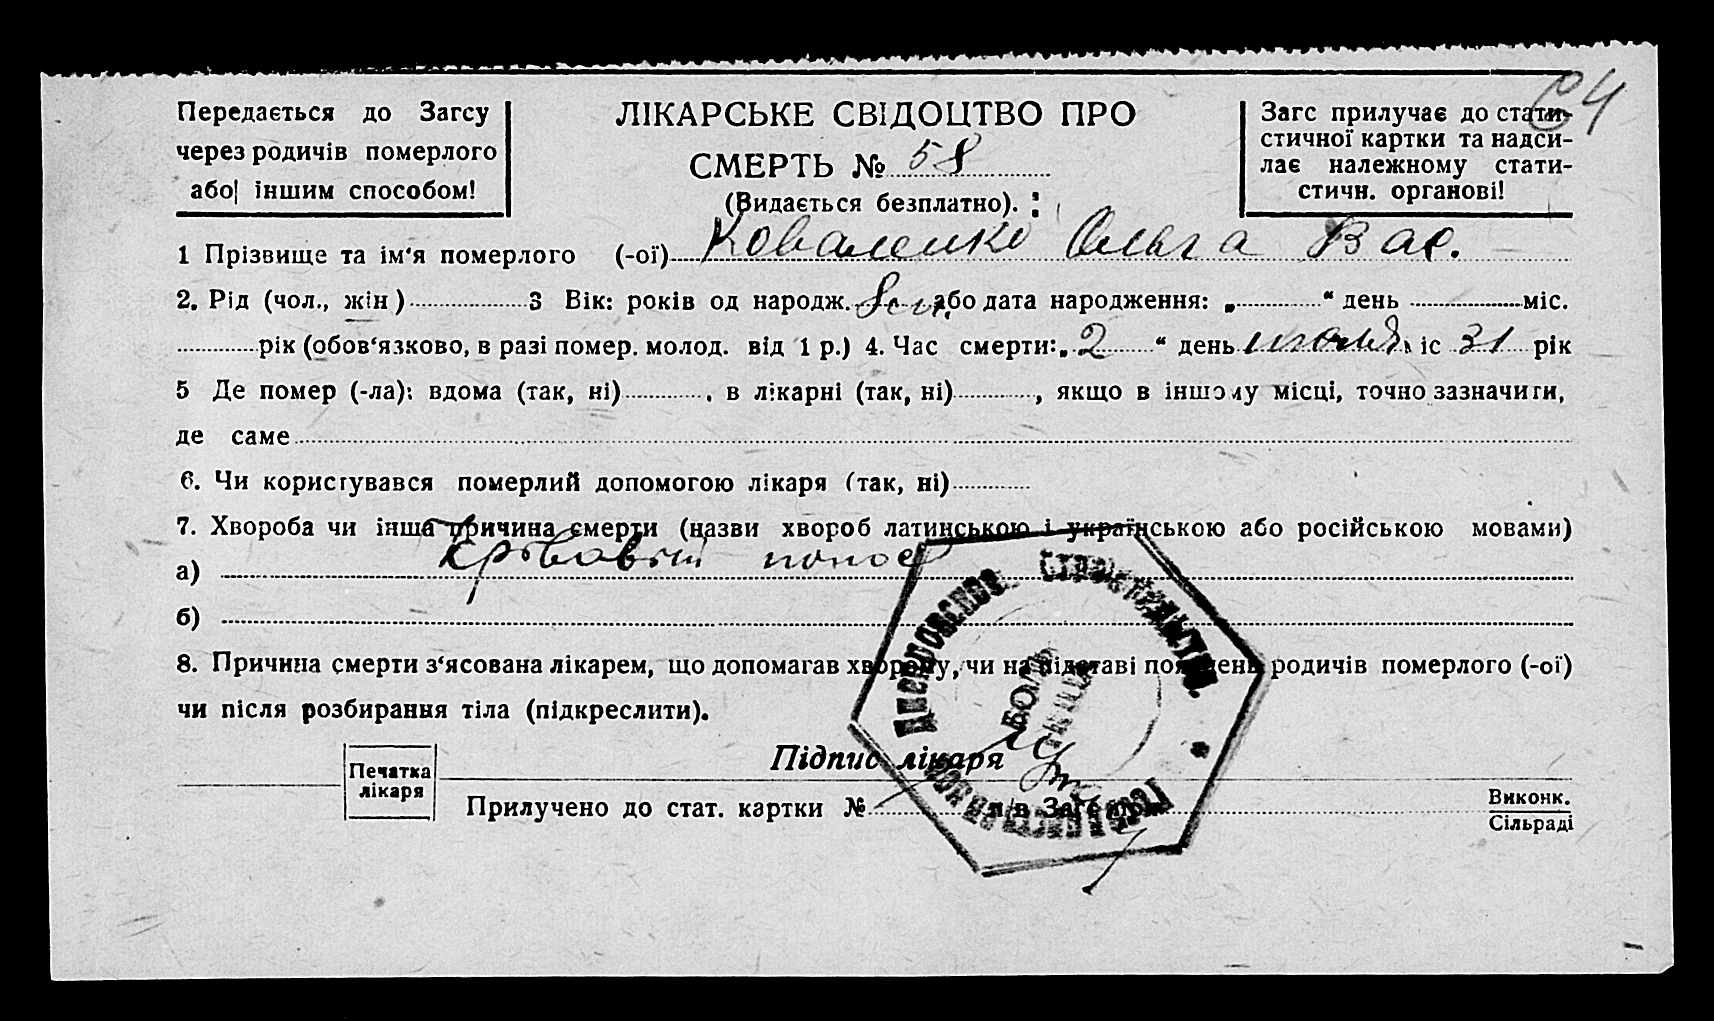 С4
Передається до Загсу
через родичів померлого
або іншим способом!
ЛІКАРСЬКЕ СВІДОЦТВО ПРО
СМЕРТЬ № 58
(Видається безплатно).
Загс прилучає до стати-
стичної картки та надси-
лає належному стати-
стичн. органові!
1 Прізвище та ім‘я померлого (-ої) Коваленко Ольга Вас.
2. Рід (чол., жін) 3 Вік: років од народж. 8 або дата народження: „ “ день міс.
рік (обов‘язково, в разі помер. молод. від 1 р.) 4. Час смерти: „ 2 “ день июля міс 31 рік
5 Де помер (-ла): вдома (так, ні) , в лікарні (так, ні) , якщо в іншому місці, точно зазначити,
де саме
6. Чи користувався померлий допомогою лікаря (так, ні)
7. Хвороба чи інша причина смерти (назви хвороб латинською і українською або російською мовами)
а) Кровавый понос
б)
8. Причина смерти з‘ясована лікарем, що допомагав хворому, чи на підставі пояснень родичів померлого (-ої)
чи після розбирання тіла (підкреслити).
Підпис лікаря
Печатка
лікаря
Прилучено до стат. картки № в Загсі
Виконк.
Сільраді
Днепровское Строительство
БОЛЬ
НИЦА